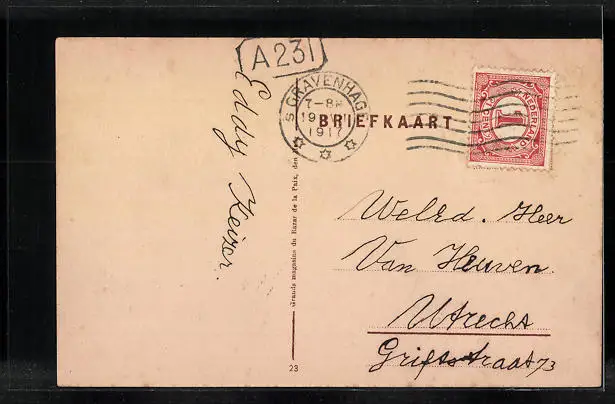 A 231
'S GRAVENHAGE
7-8
19
1917
BRIEFKAART
NEDERLAND
1
Eddy Keizer.
Grands magasins du Bazar de la Paix, den
Weled. Heer
Van Heuven.
Utrecht
Griftstraat 73
23